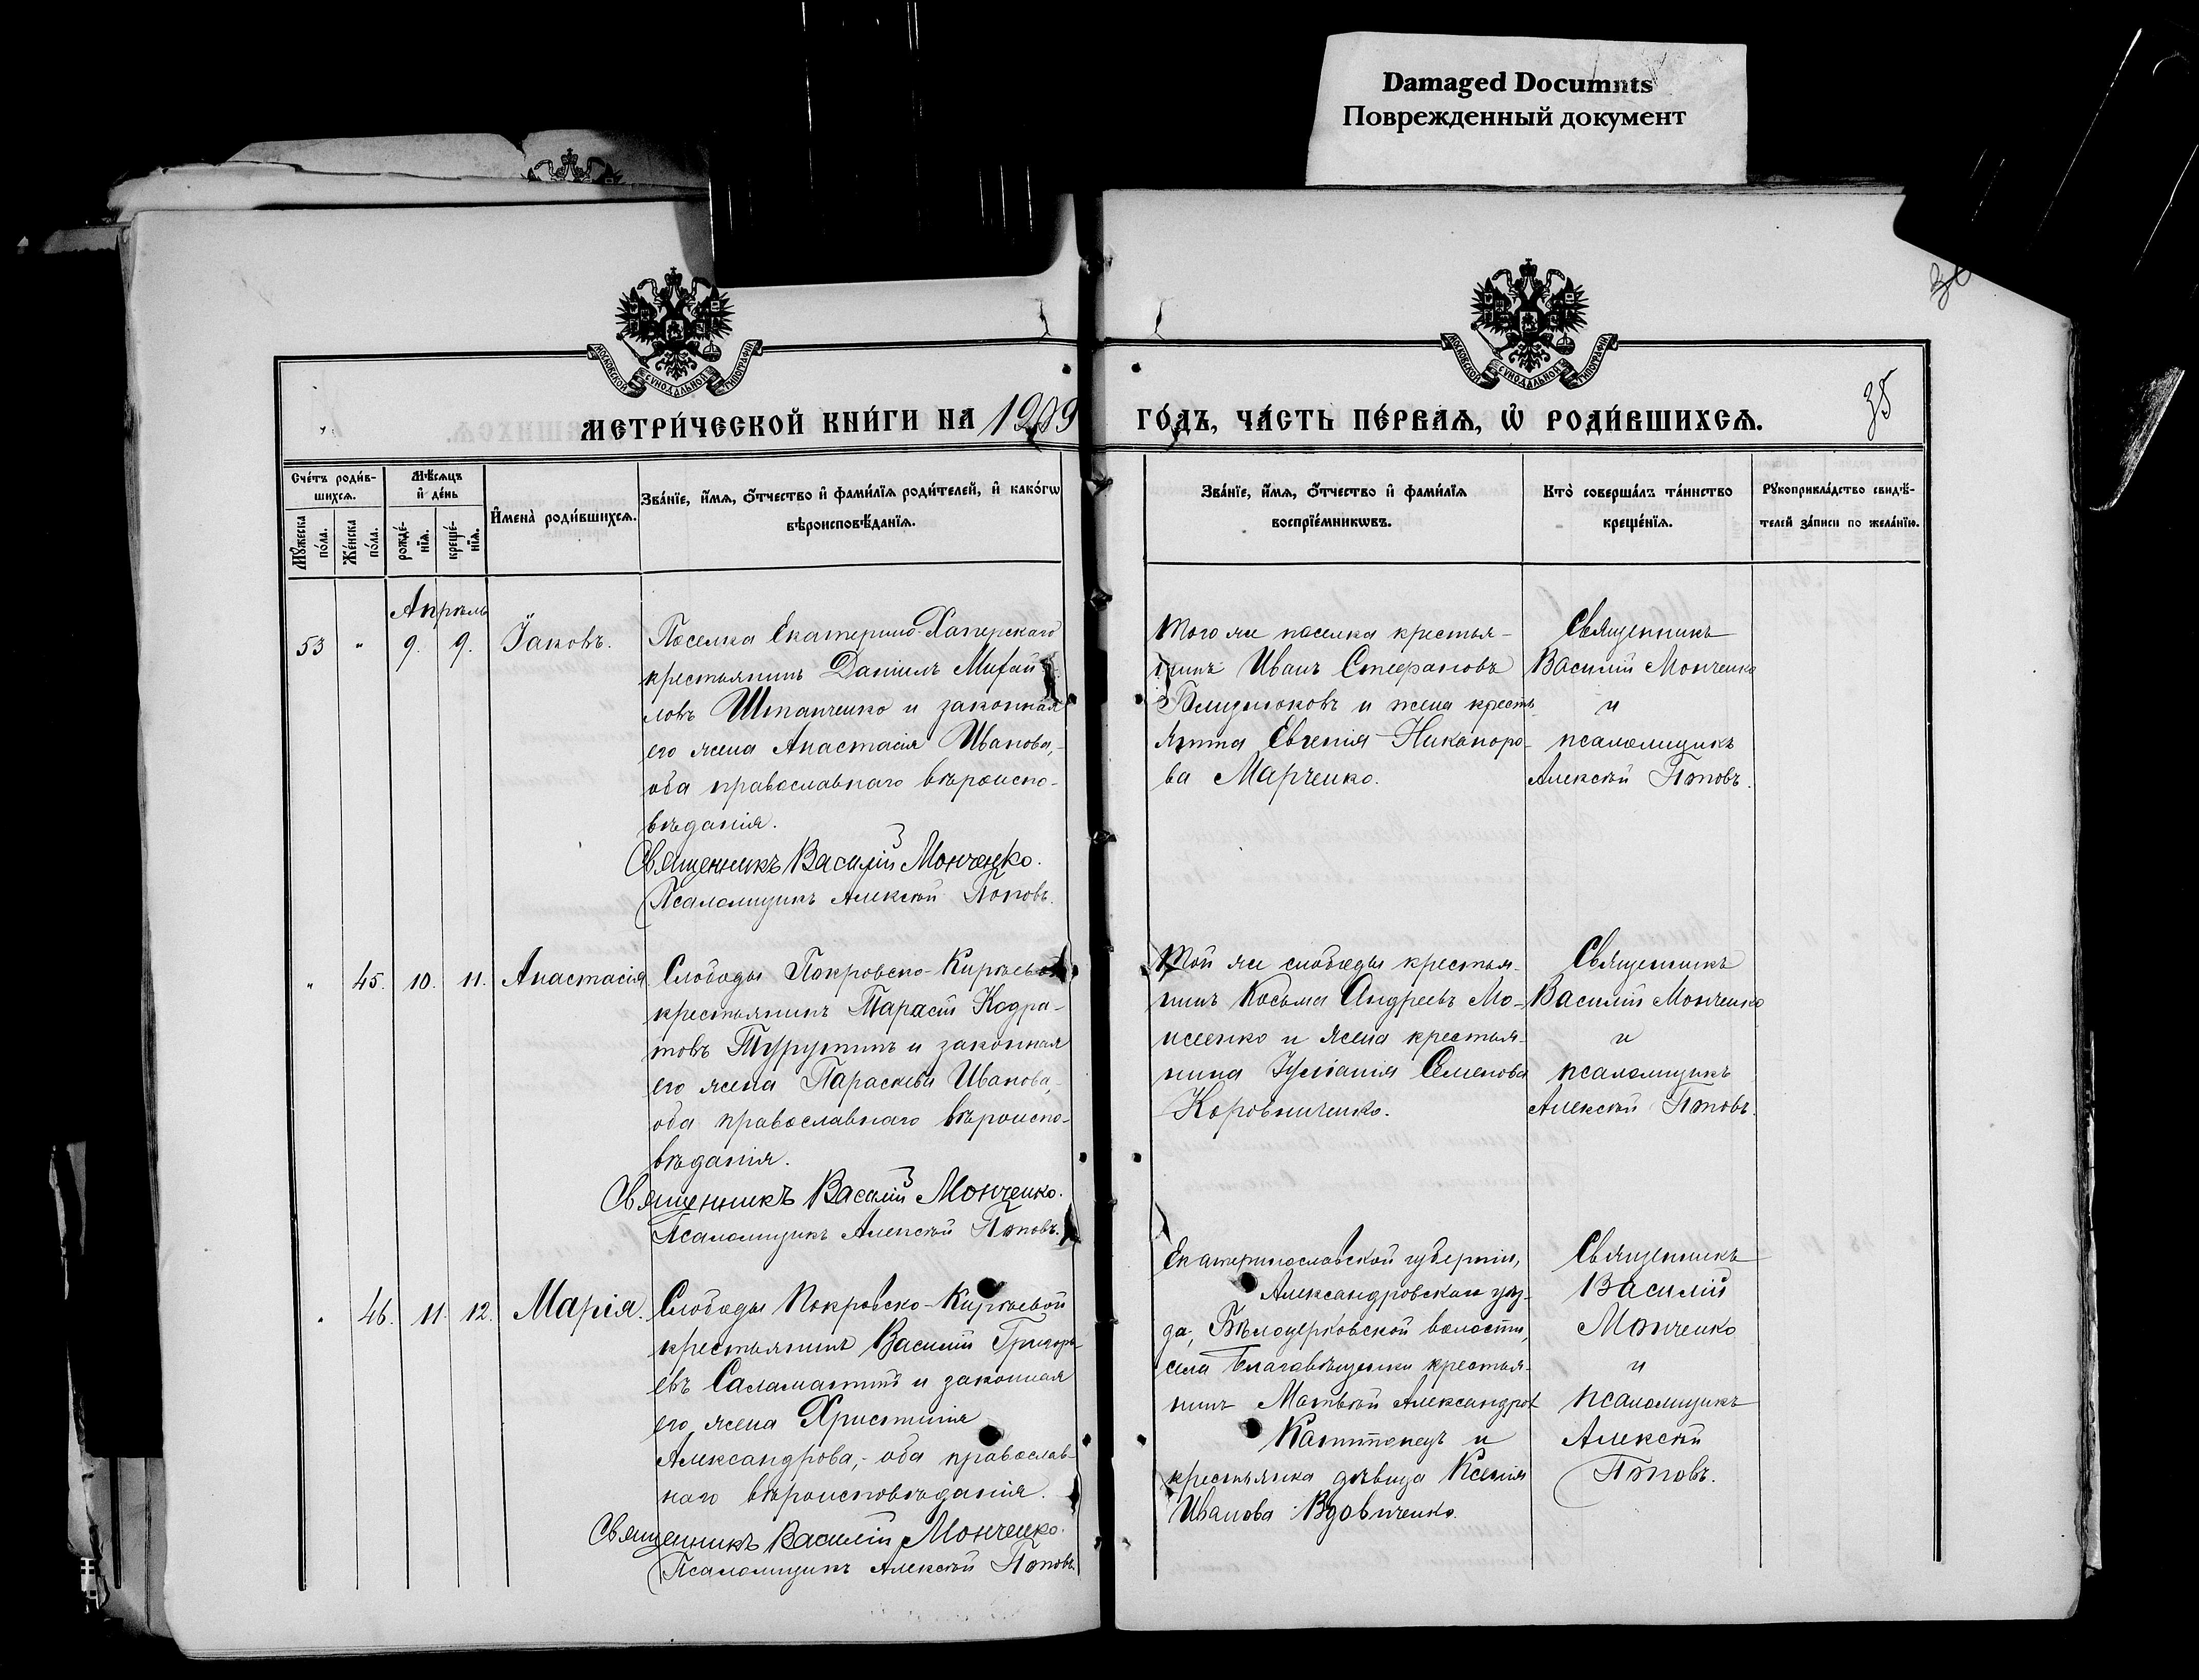 Damaged Documnts
Поврежденный документ
МОСКОВСКОЙ СѴНОДАЛЬНОЙ ТИПОГРАФІИ
МОСКОВСКОЙ СѴНОДАЛЬНОЙ ТИПОГРАФІИ
МЕТРИ́ЧЕСКОЙ КНИ́ГИ НА 1909
ГО́ДЪ, ЧА́СТЬ ПЕ́РВАѦ, Ѡ҆ РОДИ́ВШИХСѦ.
35
Сче́тъ роди́в-
шихсѧ.
Мѣ́сѧцъ
и҆ де́нь
Мꙋ́жеска
по́ла.
Же́нска
по́ла.
рожде́-
нїѧ.
креще́-
нїѧ.
И҆мена̀ роди́вшихсѧ.
Зва́нїе, и҆́мѧ, ѻ҆́тчество и҆ фами́лїѧ роди́телей, и҆ како́гѡ
вѣроисповѣ́данїѧ.
Зва́нїе, и҆́мѧ, ѻ҆́тчество и҆ фами́лїѧ
воспрїе́мникѡвъ.
Кто̀ соверша́лъ та́инство
креще́нїѧ.
Рꙋкоприкла́дство свидѣ́-
телей за́писи по жела́нїю.
Апрѣль
53 " 9. 9. Іаковъ.
Поселка Екатерино-Хаперскаго
крестьянинъ Даніилъ Михай-
ловъ и законная
его жена Анастасія Иванова,-
оба православнаго вѣроиспо-
вѣданія.
Священникъ Василій Монченко.
Псаломщикъ Алексѣй Поповъ.
Того же поселка крестья-
нинъ Иванъ Стефановъ
и жена кресть-
янина Евгенія Никаноро-
ва Марченко.
Священникъ
Василій Монченко
и
псаломщикъ
Алексѣй Поповъ.
" 45. 10. 11. Анастасія.
Слободы Покровско-Кирѣевой
крестьянинъ Тарасій Кодра-
товъ и законная
его жена Параскева Иванова,-
оба православнаго вѣроиспо-
вѣданія.
Священникъ Василій Мончеико.
Псаломщикъ Алексѣй Поповъ.
Той же слободы крестья-
нинъ Косьма Андреевъ Мо-
исеенко и жена крестья-
нина Іуліанія Семенова
Коровниченко.
Священникъ
Василій Мончеико
и
псаломщикъ
Алексѣй Поповъ.
" 46. 11. 12. Марія.
Слободы Покровско-Кирѣевой
крестьянинъ Василій Григорь-
евъ и законная
его жена Христинія
Александрова,- оба православ-
наго вѣроисповѣданія.
Священникъ Василій Мончеико.
Псаломщикъ Алексѣй Поповъ.
Екатеринославской губерніи,
Александровскаго уѣз-
да, Бѣлоцерковской волости,
села Благовѣщенки крестья-
нинъ Матѳей Александров
и
крестьянка дѣвица Ксенія
Иванова Вдовиченко.
Священникъ
Василій
Мончеико
и
псаломщикъ
Алексѣй
Поповъ.